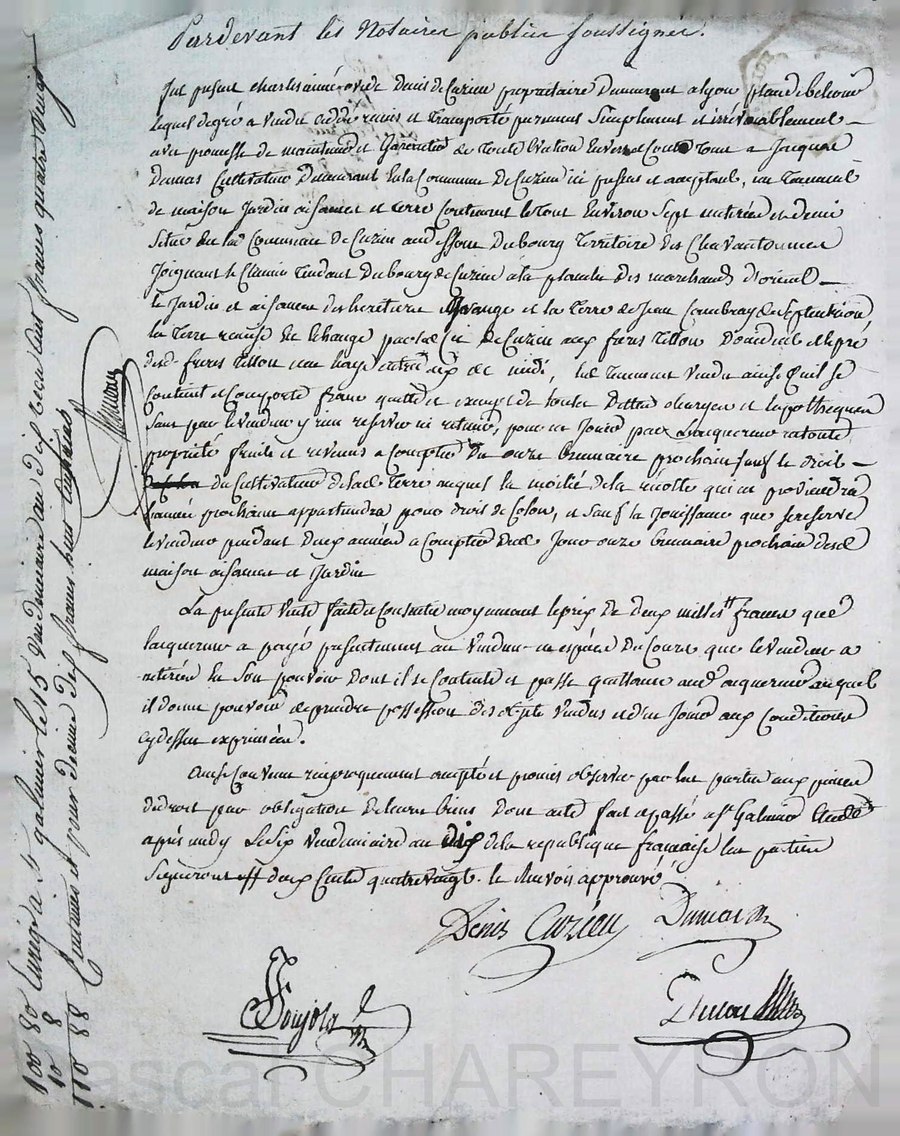 Pardevant les Notaires publics soussignés.
fut présent charles aimé ovide Denis deCuzieu propriétaire Demeurant a lyon place de
lequel degré a vendu cédé remis et transporté purement simplement et irrévocablement
avec promesse de maintenue et Garentie de toute Eviction Envers et Contre Tous a Jacques
Damas Cultivateur Demeurant En la Commune DeCuzieu ici présent et acceptant, un Tenement
de maison Jardin aisances et terre Contenant le tout Environ Sept meterées et demi
Situé en lad. Commune DeCuzieu au dessous Dubourg Territoire des
Joignant le Chemin Tendant Dubourg deCuzieu à la des marchands
le Jardin et aisances et la Terre de Jean de Septentrion
la Terre en Echange par led. DeCuzieu aux freres Tillon et le pré
desd. freres Tillon une haye entre de midi, led. Tenement Vendu ainsi qu'il se
Contient et Comporte franc quitte et exempt de toutes Dettes charges et hypotheques
Sans par le vendeur y rien reserver ni retenir, pour en Jouir par L'acquereur en toute
propriété fruits et revenus a Compter Du onze brumaire prochain sauf le droit
du Cultivateur de lad. Terre auquel la moitié de la récolte qui en proviendra
l'année prochaine appartiendra pour droit de Colon, et Sauf la Jouissance que se reserve
le vendeur pendant Deux années a Compter Dud. Jour onze brumaire prochain desd.
maison aisances et Jardin
La présente Vente faite et Consentie moyennant le prix De Deux mille francs que
l'acquereur a payé présentement au Vendeur en espèces De Cours que le Vendeur a
retirées En Son pouvoir Dont il se Contente et passe quittance aud. acquereur auquel
il donne pouvoir de prendre possession des objets Vendus et d'en Jouir aux Conditions
cy dessus exprimées.
Ainsi Convenu reciproquement accepté et promis observer par les parties aux peines
de droit par obligation de leurs biens Dont acte fait et passé a St Galmier
après midy Le Six Vendemiaire an dix de la republique française les parties
Signeront deux Cents quatrevingt. le approuvé
Denis Cuzieu Damas
Soujola
Enrégré à St galmier le 15 vendemiaire an dix reçu cent francs quatre vingt
Centimes et pour dixième dix francs huit centimes
100 80
10 8
110 88
Pascal CHAREYRON